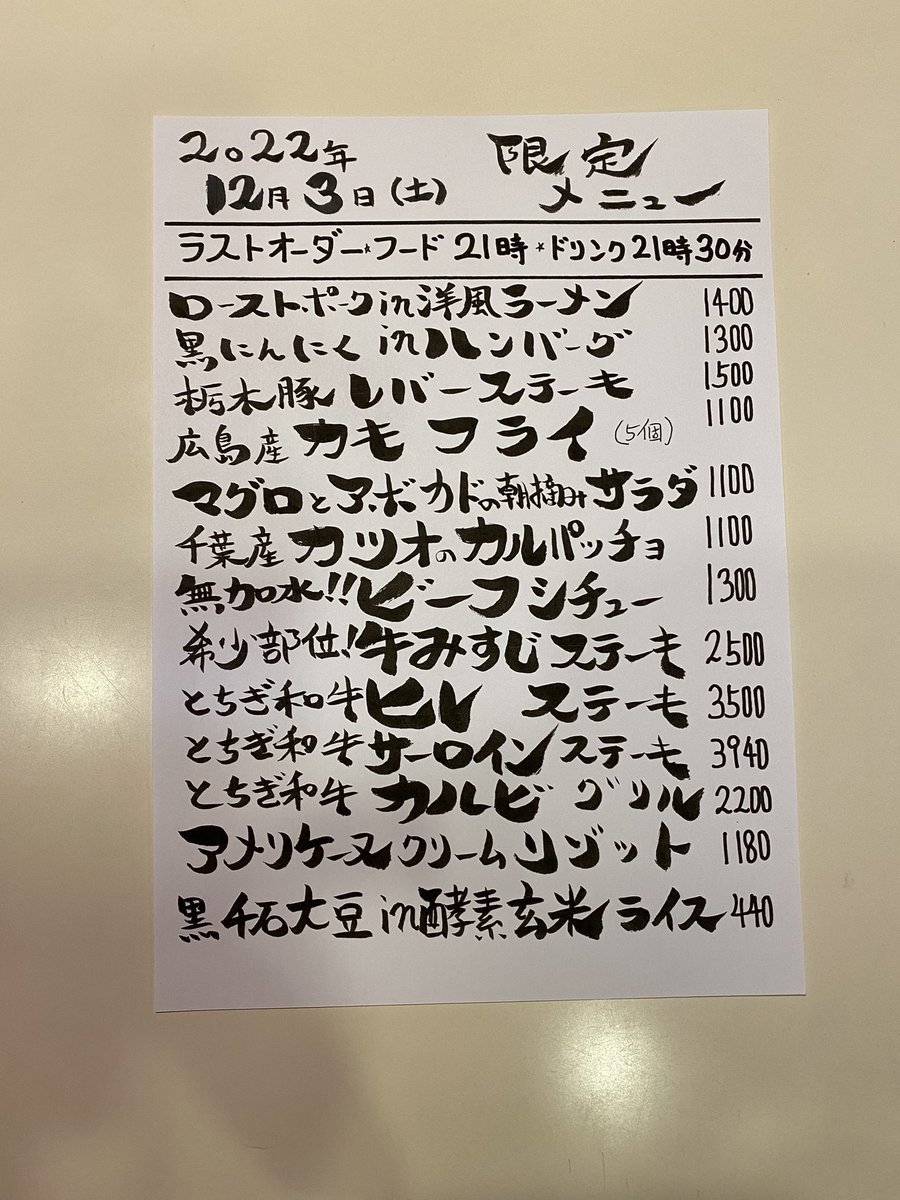 2022年 限定
12月3日(土) メニュー
ラストオーダー*フード21時*ドリンク21時30分
ローストポークin洋風ラーメン 1400
黒にんにくinハンバーグ 1300
栃木豚レバーステーキ 1500
広島産カキフライ(5個) 1100
マグロとアボカドの朝摘みサラダ 1100
千葉産カツオのカルパッチョ 1100
無加水!!ビーフシチュー 1300
希少部位!牛みすじステーキ 2500
とちぎ和牛ヒレ ステーキ 3500
とちぎ和牛サーロインステーキ 3940
とちぎ和牛カルビグリル 2200
アメリケーヌクリームリゾット 1180
黒千石大豆in酵素玄米ライス 440